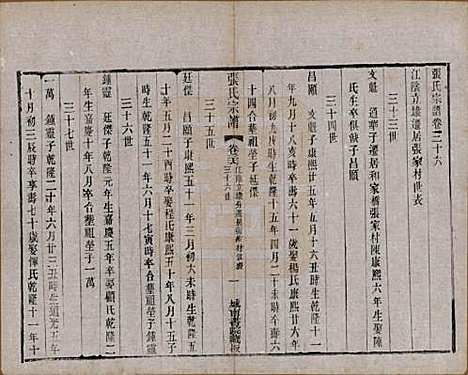 張氏宗譜卷三十六
江陰立墩遷居張家村世表
三十三世
文魁 道華子遷居和家橋張家村陳康熙六年生娶陳
氏生卒俱缺子昌頤
三十四世
昌頤 文魁子康熙廿五年五月十六丑時生乾隆十一
年九月十八亥時卒壽六十一歲娶楊氏康熙廿六年
八月初九戌時生乾隆十五年四月二十日未時卒壽六
十四合葬祖塋子廷傑
張氏宗譜 卷三十六
三十六世
一
城南書院藏板
三十五世
廷傑 昌頤子康熙五十一年三月初六未時生乾隆二
十年五月二十酉時卒娶程氏康熙五十年八月十五子
時生乾隆五十一年六月十七寅時卒合葬祖塋子鍾靈
三十六世
鍾靈 廷傑子乾隆元年生嘉慶五年卒娶顧氏乾隆二
年生嘉慶十年八月卒合葬祖塋子一萬
三十七世
一萬 鍾靈子乾隆二十年六月廿三丑時生道光六年
十月初三辰時卒享壽七十歲娶惲氏乾隆二十一年十